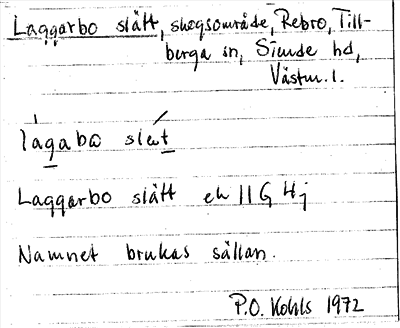 Laggarbo slått, skogsområde, Rebro, Till-
berga sn, Siende hd,
Västm. l.
lagabo slæt
Laggarbo slått ek 11G 4j
Namnet brukas sällan.
P.O. Kohls 1972